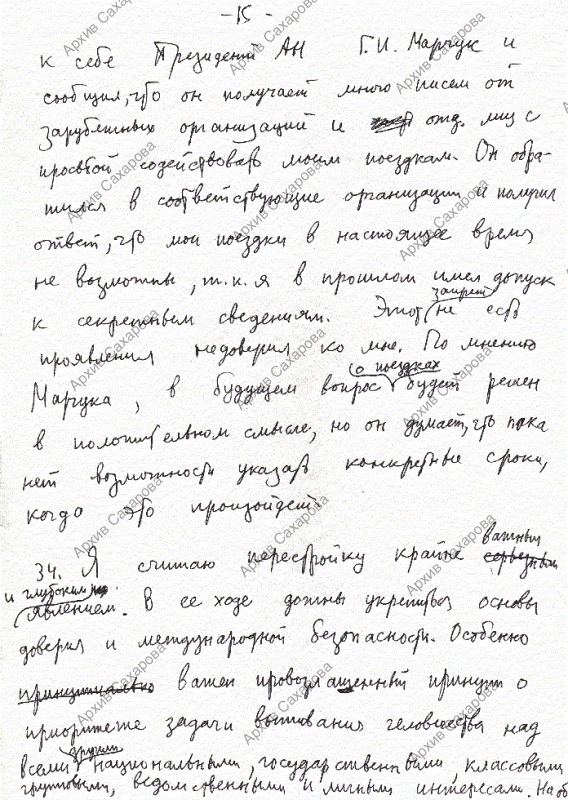 - 15 -
к себе Президент АН Г.И. Марчук и
сообщил, что он получает много писем от
зарубежных организаций и отд. лиц с
просьбой содействовать моим поездкам. Он обра-
тился в соответствующие организации и получил
ответ, что мои поездки в настоящее время
не возможны, т.к. я в прошлом имел допуск
к секретным сведениям. Этот запрет не есть
проявления недоверия ко мне. По мнению
Марчука, в будущем вопрос о поездках будет решен
в положительном смысле, но он думает, что пока
нет возможности указать конкретные сроки,
когда это произойдет.
34. Я считаю перестройку крайне важным
и глубоким явлением. В ее ходе должны укрепиться основы
доверия и международной безопасности. Особенно
принципиально важен провозглашенный принцип о
приоритете задачи выживания человечества над
всеми другими национальными, государственными, классовыми,
групповыми, ведомственными и личными интересами. На об
Архив Сахарова